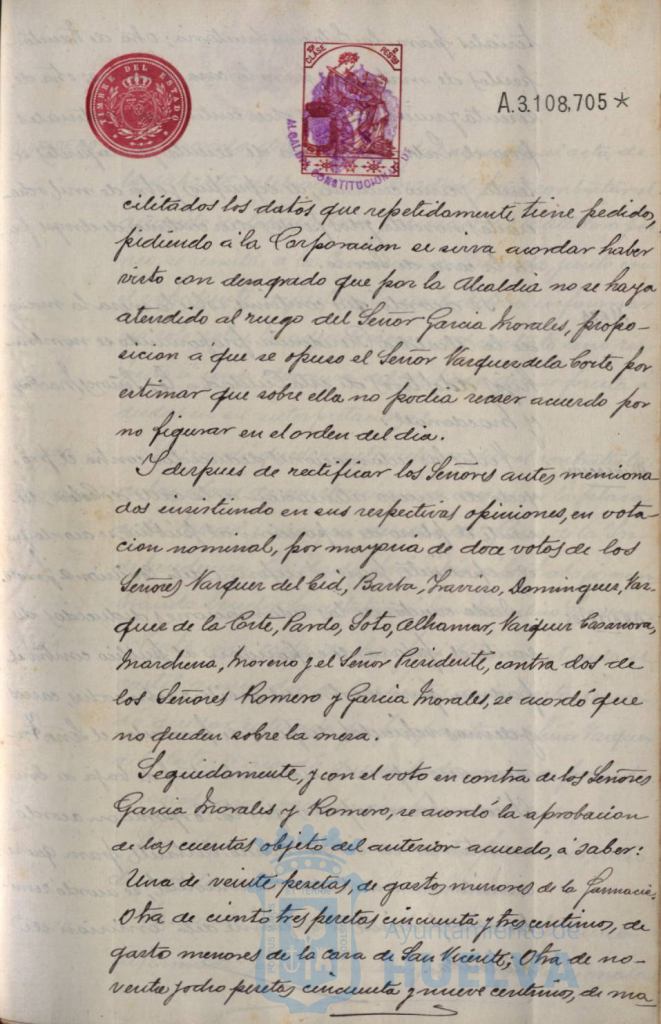 TIMBRE DEL ESTADO
10ª CLASE 2 PESETAS
ALCALDIA CONSTITUCIONAL DE
A.3.108,705*
cilitados los datos que repetidamente tiene pedido,
pidiendo á la Corporacion se sirva acordar haber
visto con desagrado que por la Alcaldia no se haya
atendido al ruego del Señor Garcia Morales, propo-
sicion á que se opuso el Señor Vazquez de la Corte por
estimar que sobre ella no podia recaer acuerdo por
no figurar en el orden del dia.
Y despues de rectificar los Señores antes menciona
dos insistiendo en sus respectivas opiniones, en vota
cion nominal, por mayoria de doce votos de los
Señores Vazquez del Cid, Barba, Dominguez, Vaz-
quez de la Corte, Pardo, Soto, Alhamar, Vazquez Casanova,
Marchena, Moreno y el Señor Presidente, contra dos de
los Señores Romero y Garcia Morales, se acordó que
no queden sobre la mesa.
Seguidamente, y con el voto en contra de los Señores
Garcia Morales y Romero, se acordó la aprobacion
de las cuentas objeto del anterior acuerdo, á saber:
Una de veinte pesetas, de gastos menores de la Farmacia:
Otra de ciento tres pesetas cincuenta y tres centimos, de
gasto menores de la casa de San Vicente; Otra de no-
venta y ocho pesetas cincuenta y nueve centimos, de ma
Ayuntamiento de
HUELVA